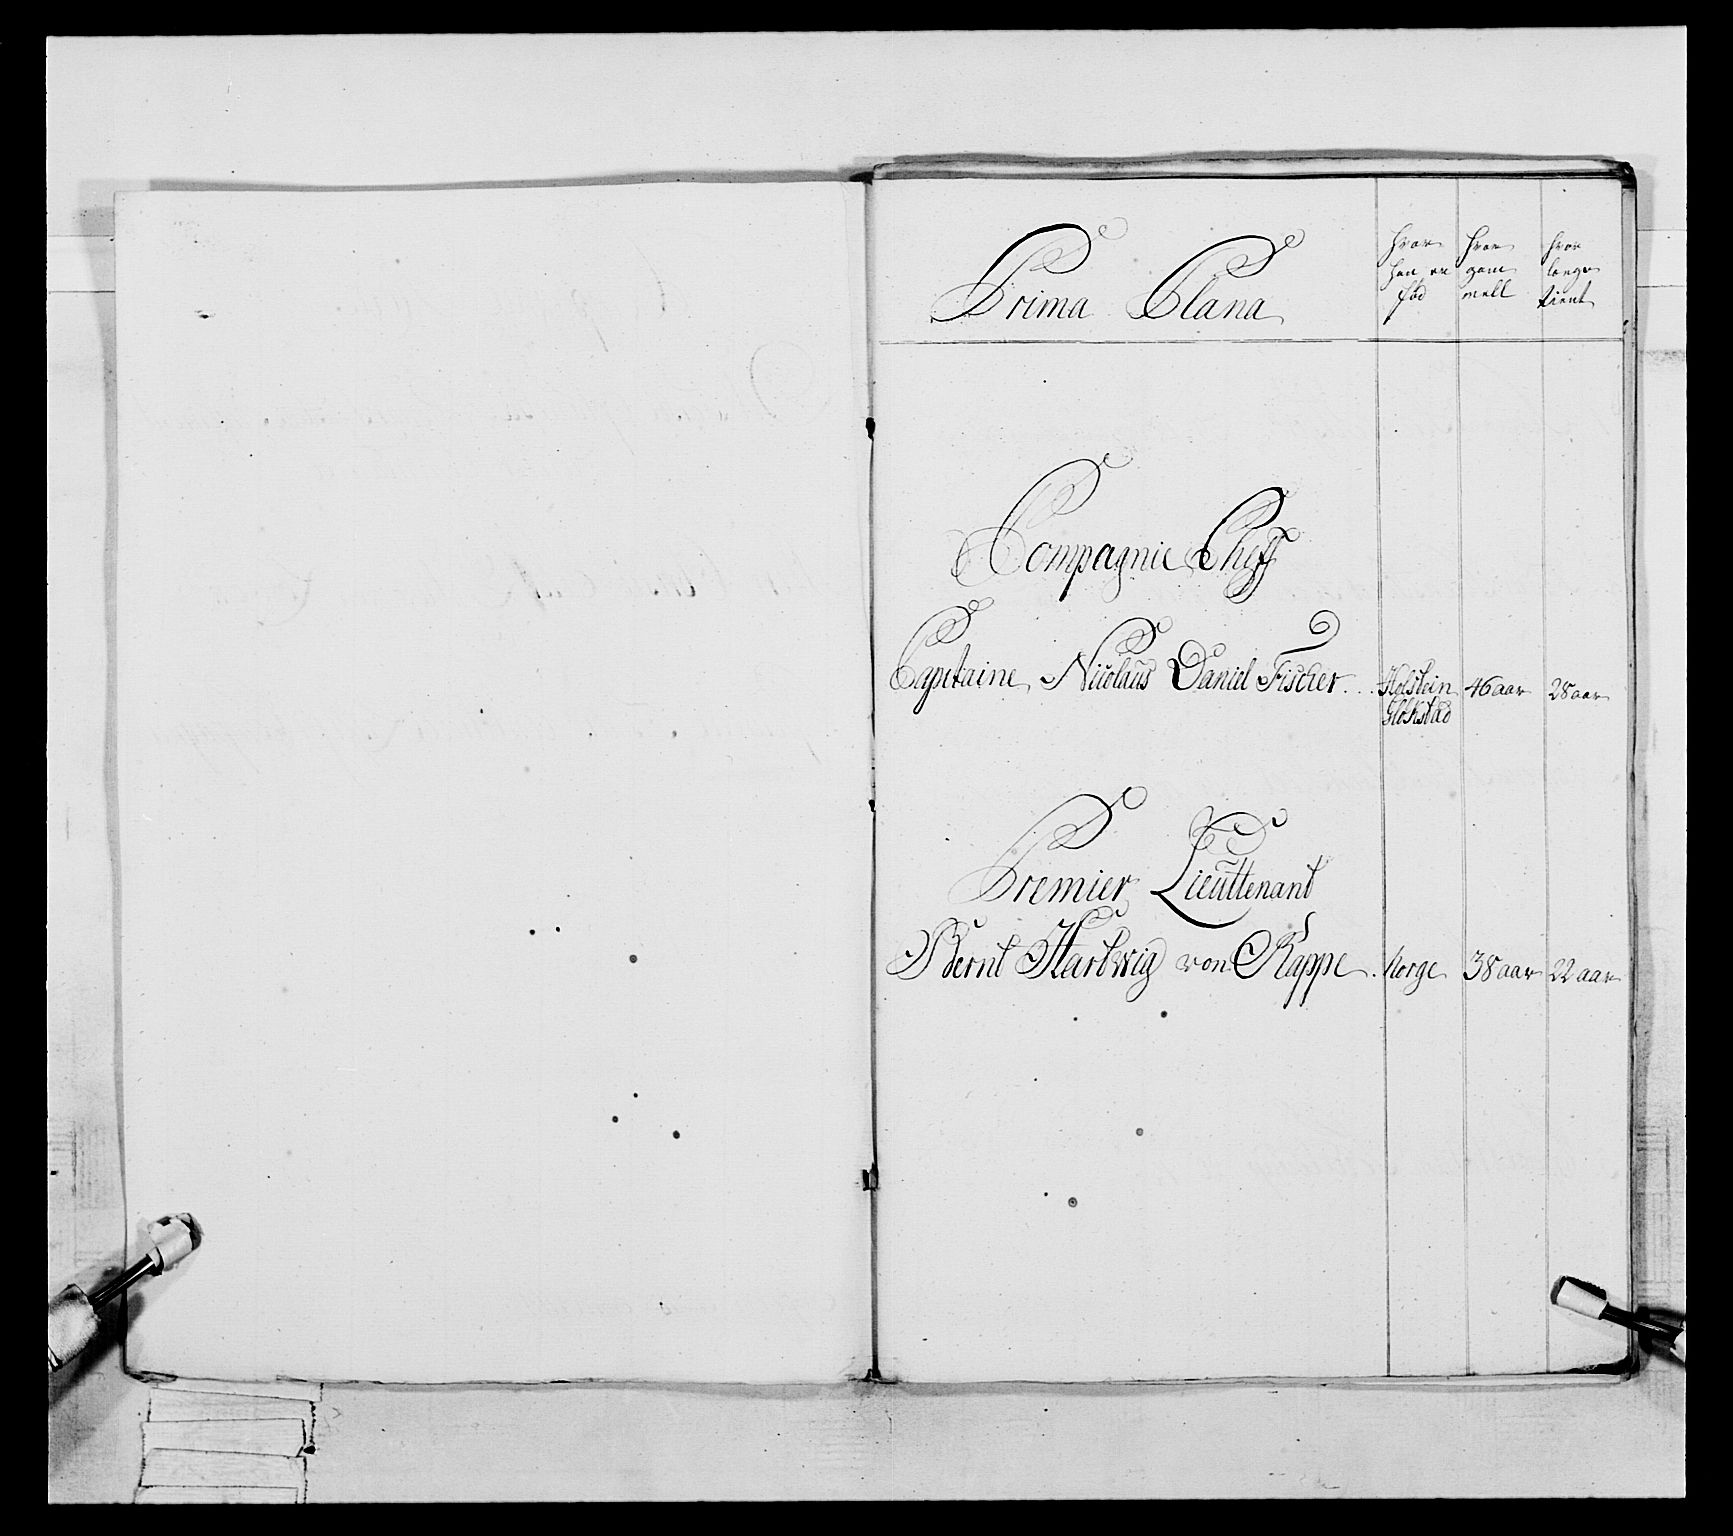 Prima Plana
hvor han er fød
hvor gam mell
hvor længe tient
Compagnie Cheff
Capitaine Nicolaus Daniel Fischer. Holstein 46 aar 28 aar
Glökstad
Premier Lieuttenant
Bernt Hartwig von Kappe. Norge 38 aar 22 aar